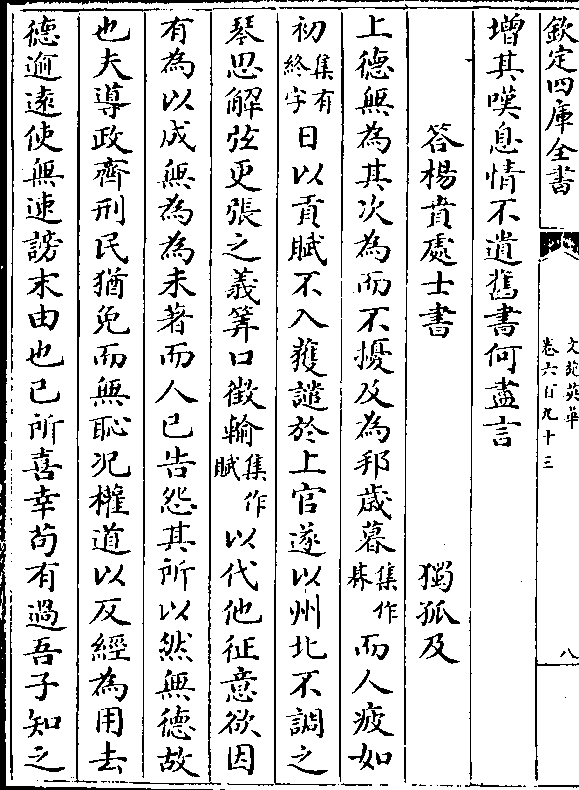 欽定四庫全書
文苑英華
卷六百九十三
八
增其嘆息情不遺舊書何盡言
答楊賁處士書　獨孤及
上德無為其次為而不擾及為邦歲暮集作朞而人疲如
初集有終字日以貢賦不入獲譴於上官遂以州北不調之
琴思解弦更張之義筭口徵輸集作賦以代他征意欲因
有為以成無為為未著而人已告怨其所以然無德故
也夫導政齊刑民猶免而無恥况權道以反經為用去
德逾遠使無速謗末由也已所喜幸苟有過吾子知之